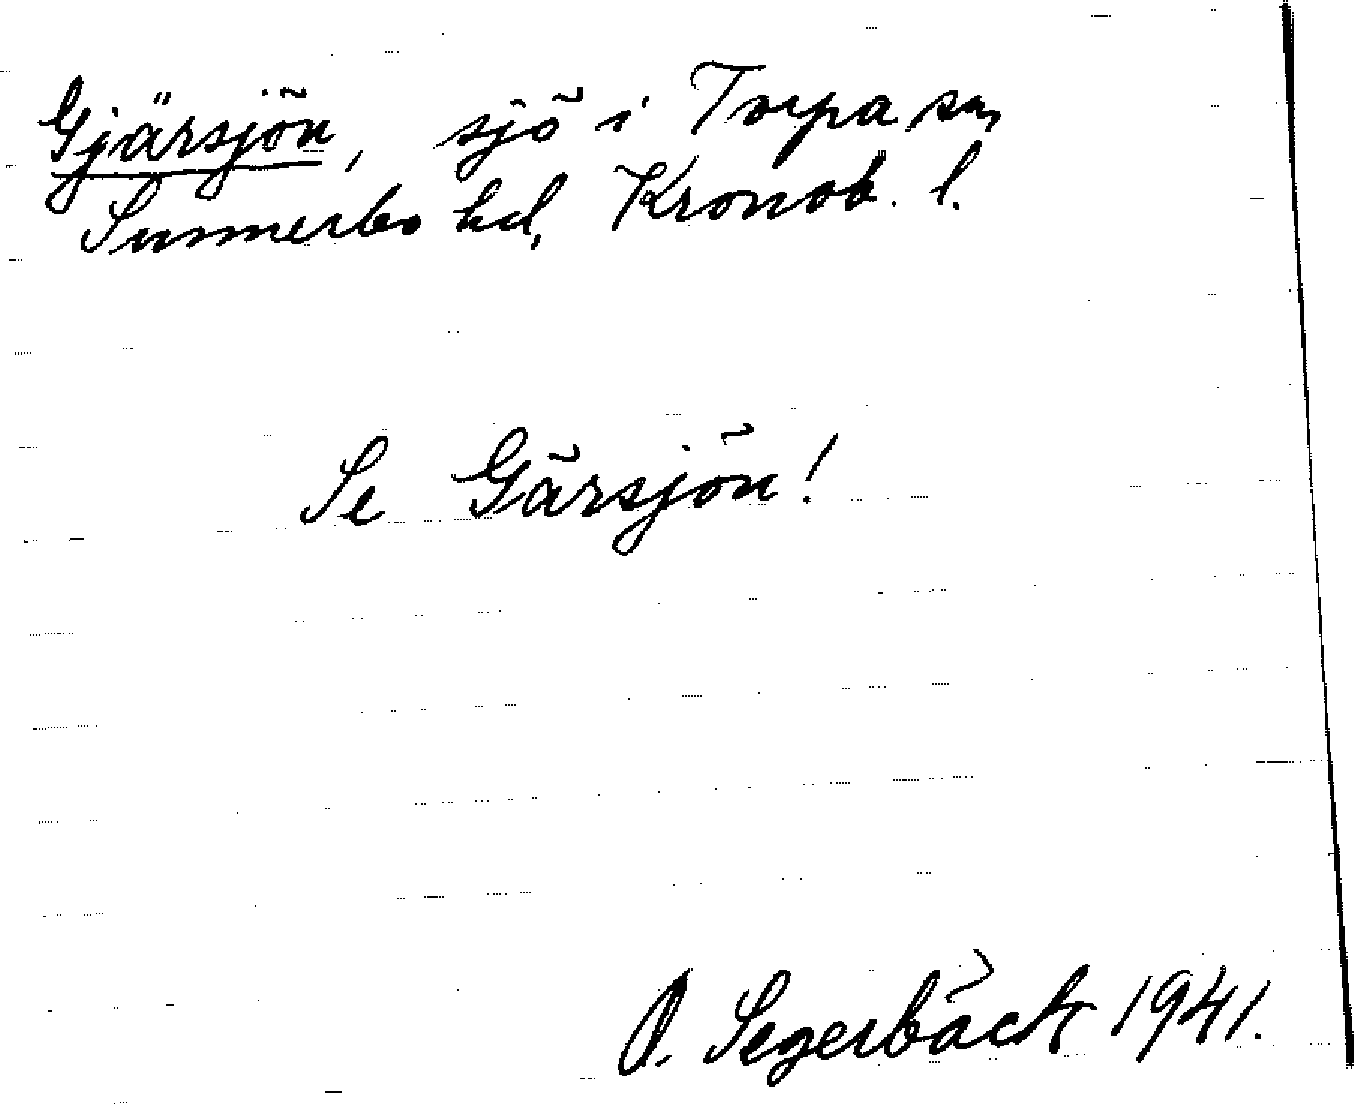 Gjärsjön, sjö i Torpa sn,
Sunnerbo hd, Kronob. l.
Se Gärsjön!
Segerbäck 1941.